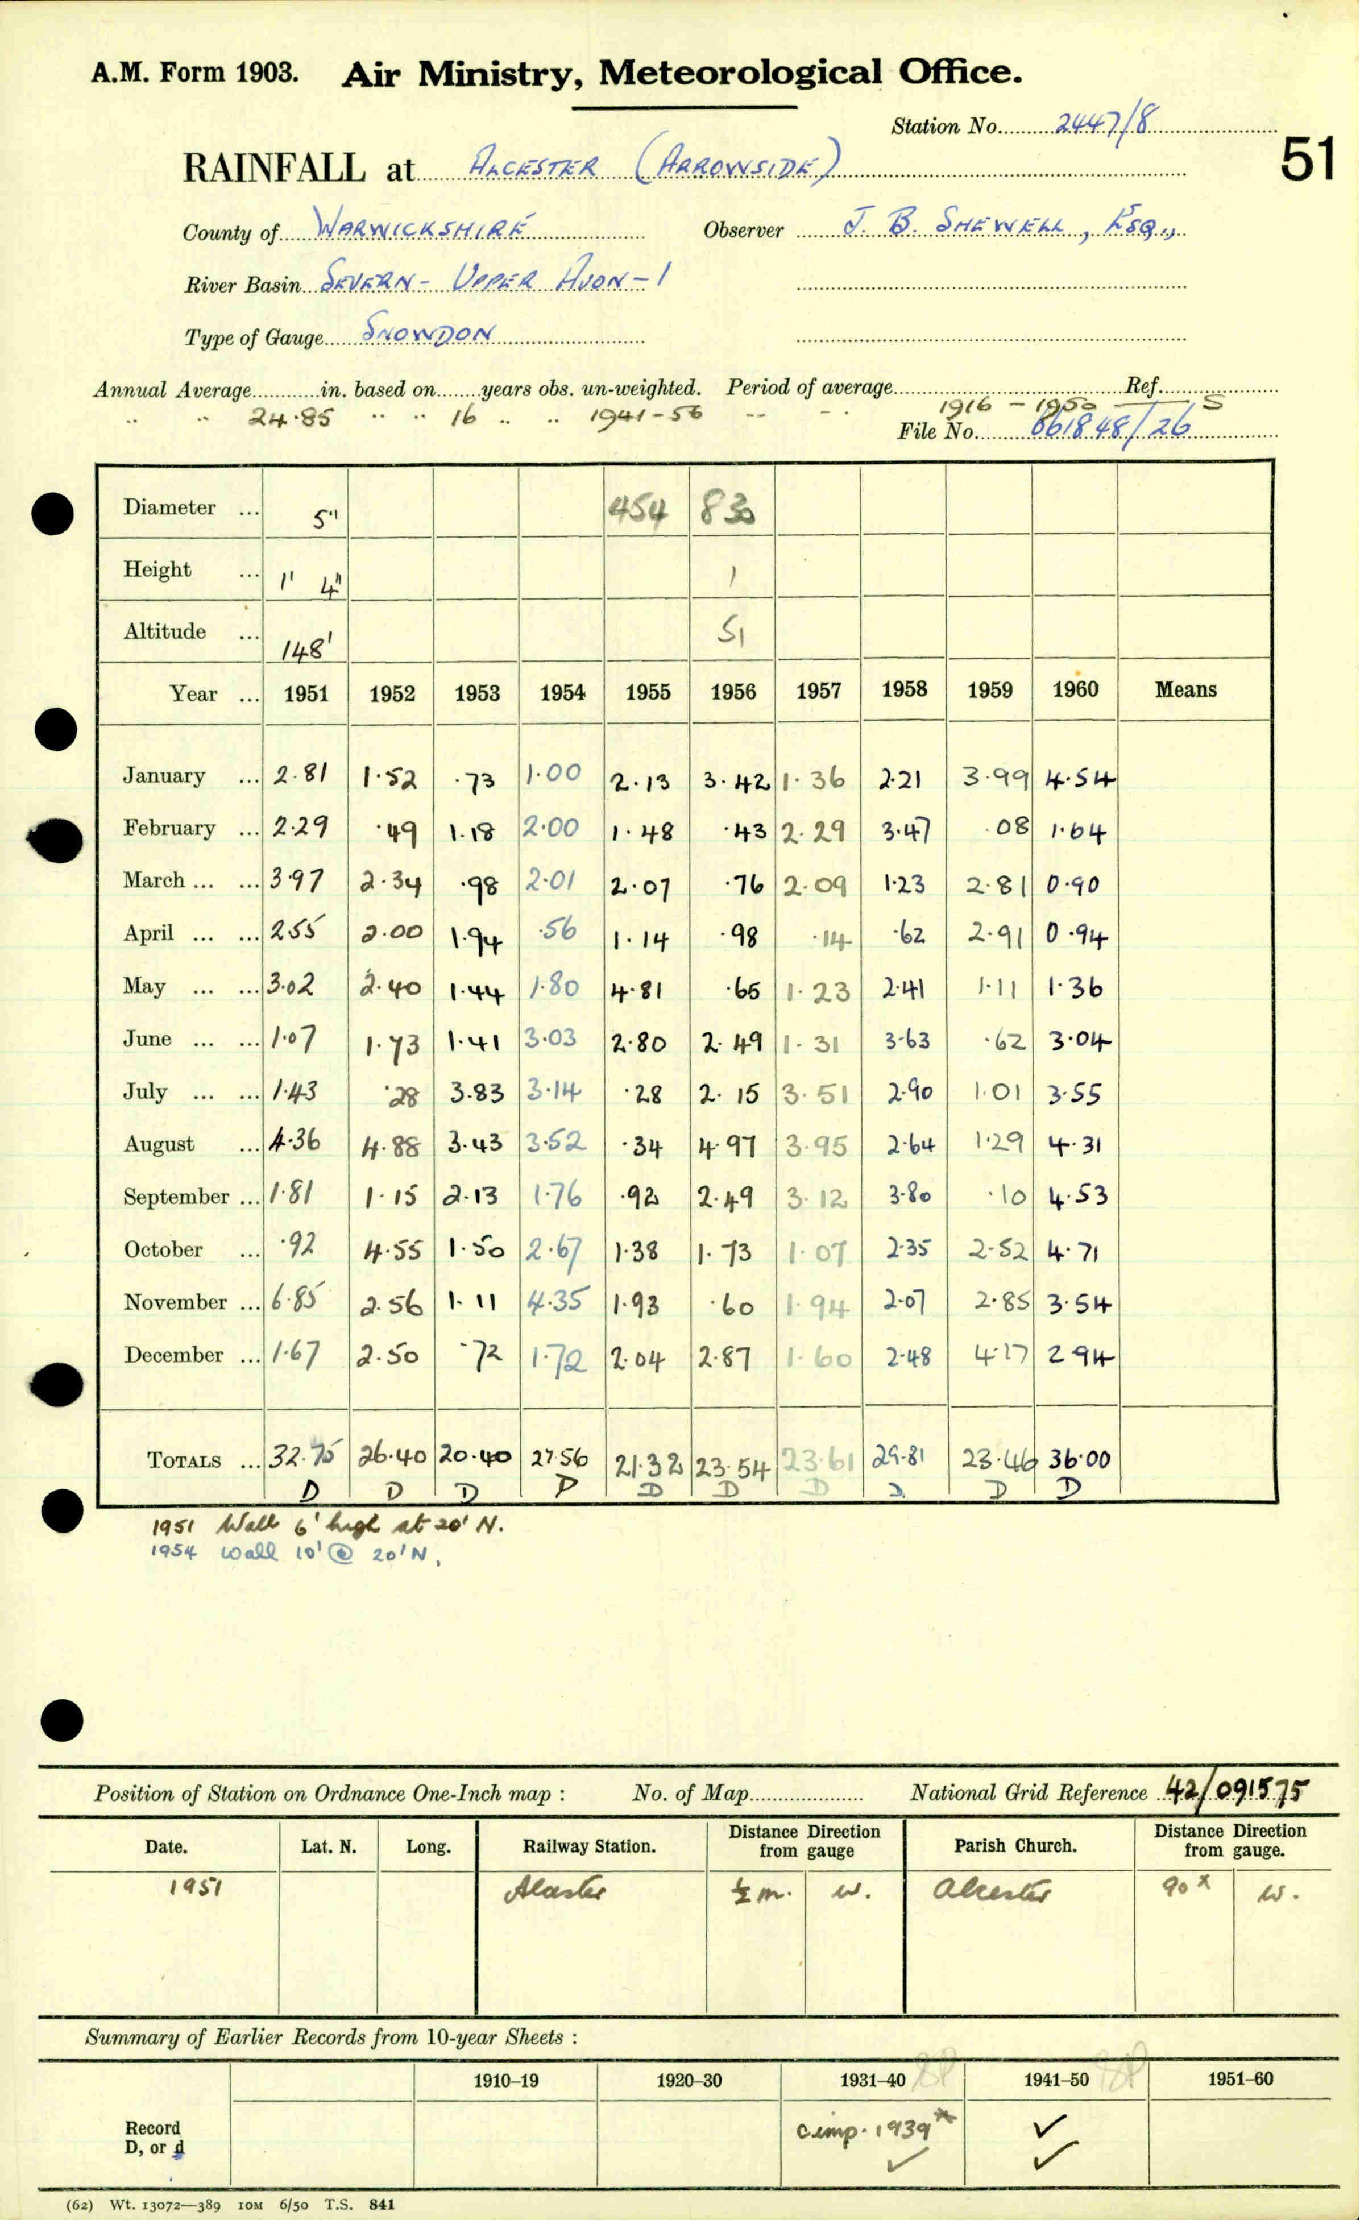 A.M. Form 1903. Air Ministry, Meteorological Office.
Station No. 2447/8
51
RAINFALL at ALCESTER (ARROWSIDE)
County of WARWICKSHIRE Observer J. B. SHEWELL, ESQ.,
River Basin SEVERN - UPPER AVON - 1
Type of Gauge SNOWDON
Annual Average in. based on years obs. un-weighted. Period of average Ref.
" " 24.85 " " 16 " " 1941-56 " " 1916 - 1950 S
File No. 661848/26
Diameter ... 5" 454 830
Height ... 1' 4" 1
Altitude ... 148' 51
Year ... 1951 1952 1953 1954 1955 1956 1957 1958 1959 1960 Means
January ... 2.81 1.52 .73 1.00 2.13 3.42 1.36 2.21 3.99 4.54
February ... 2.29 .49 1.18 2.00 1.48 .43 2.29 3.47 .08 1.64
March ... ... 3.97 2.34 .98 2.01 2.07 .76 2.09 1.23 2.81 0.90
April ... ... 2.55 2.00 1.94 .56 1.14 .98 .14 .62 2.91 0.94
May ... ... 3.02 2.40 1.44 1.80 4.81 .65 1.23 2.41 1.11 1.36
June ... ... 1.07 1.73 1.41 3.03 2.80 2.49 1.31 3.63 .62 3.04
July ... ... 1.43 .28 3.83 3.14 .28 2.15 3.51 2.90 1.01 3.55
August ... 4.36 4.88 3.43 3.52 .34 4.97 3.95 2.64 1.29 4.31
September ... 1.81 1.15 2.13 1.76 .92 2.49 3.12 3.80 .10 4.53
October ... .92 4.55 1.50 2.67 1.38 1.73 1.07 2.35 2.52 4.71
November ... 6.85 2.56 1.11 4.35 1.93 .60 1.94 2.07 2.85 3.54
December ... 1.67 2.50 .72 1.72 2.04 2.87 1.60 2.48 4.17 2.94
TOTALS ... 32.75 26.40 20.40 27.56 21.32 23.54 23.61 29.81 23.46 36.00
D D D D D D D D D D
1951 Wall 6' high at 20' N.
1954 Wall 10' @ 20' N.
Position of Station on Ordnance One-Inch map : No. of Map National Grid Reference 42/091575
Date. Lat. N. Long. Railway Station. Distance from Direction gauge Parish Church. Distance from Direction gauge.
1951 Alcester ½ m. W. Alcester 90 x W.
Summary of Earlier Records from 10-year Sheets :
1910–19 1920–30 1931–40 SP 1941–50 SP 1951–60
Record D, or d comp. 1939* ✓ ✓ ✓
(62) Wt. 13072—389 10M 6/50 T.S. 841